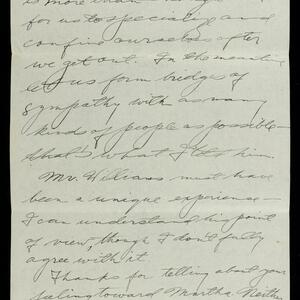 is more than
for us to specialize and
confine ourselves after
we get out. In the meantime
let us form bridges of
sympathy with as many
kinds of people as possible—
that's what I tell him.
Mr. Williams must have
been a unique experience—
I can understand his point
of view, though I don't fully
agree with it.
Thanks for telling about your
feeling toward Martha. Neither